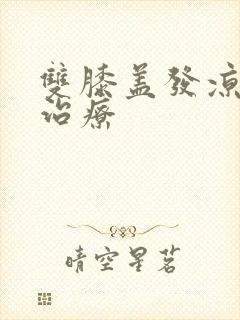 雙膝蓋發涼
治療
晴空星茗